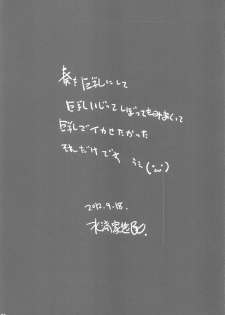 奏を巨乳にして
巨乳いじってしぼってもみまくって
巨乳でイカせたかった
それだけです うう(;ω;)
2012.9.18.